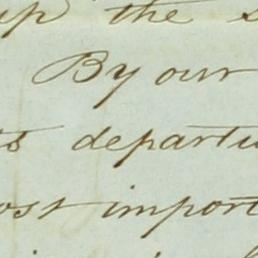 up the s
By our
s departu
ost import